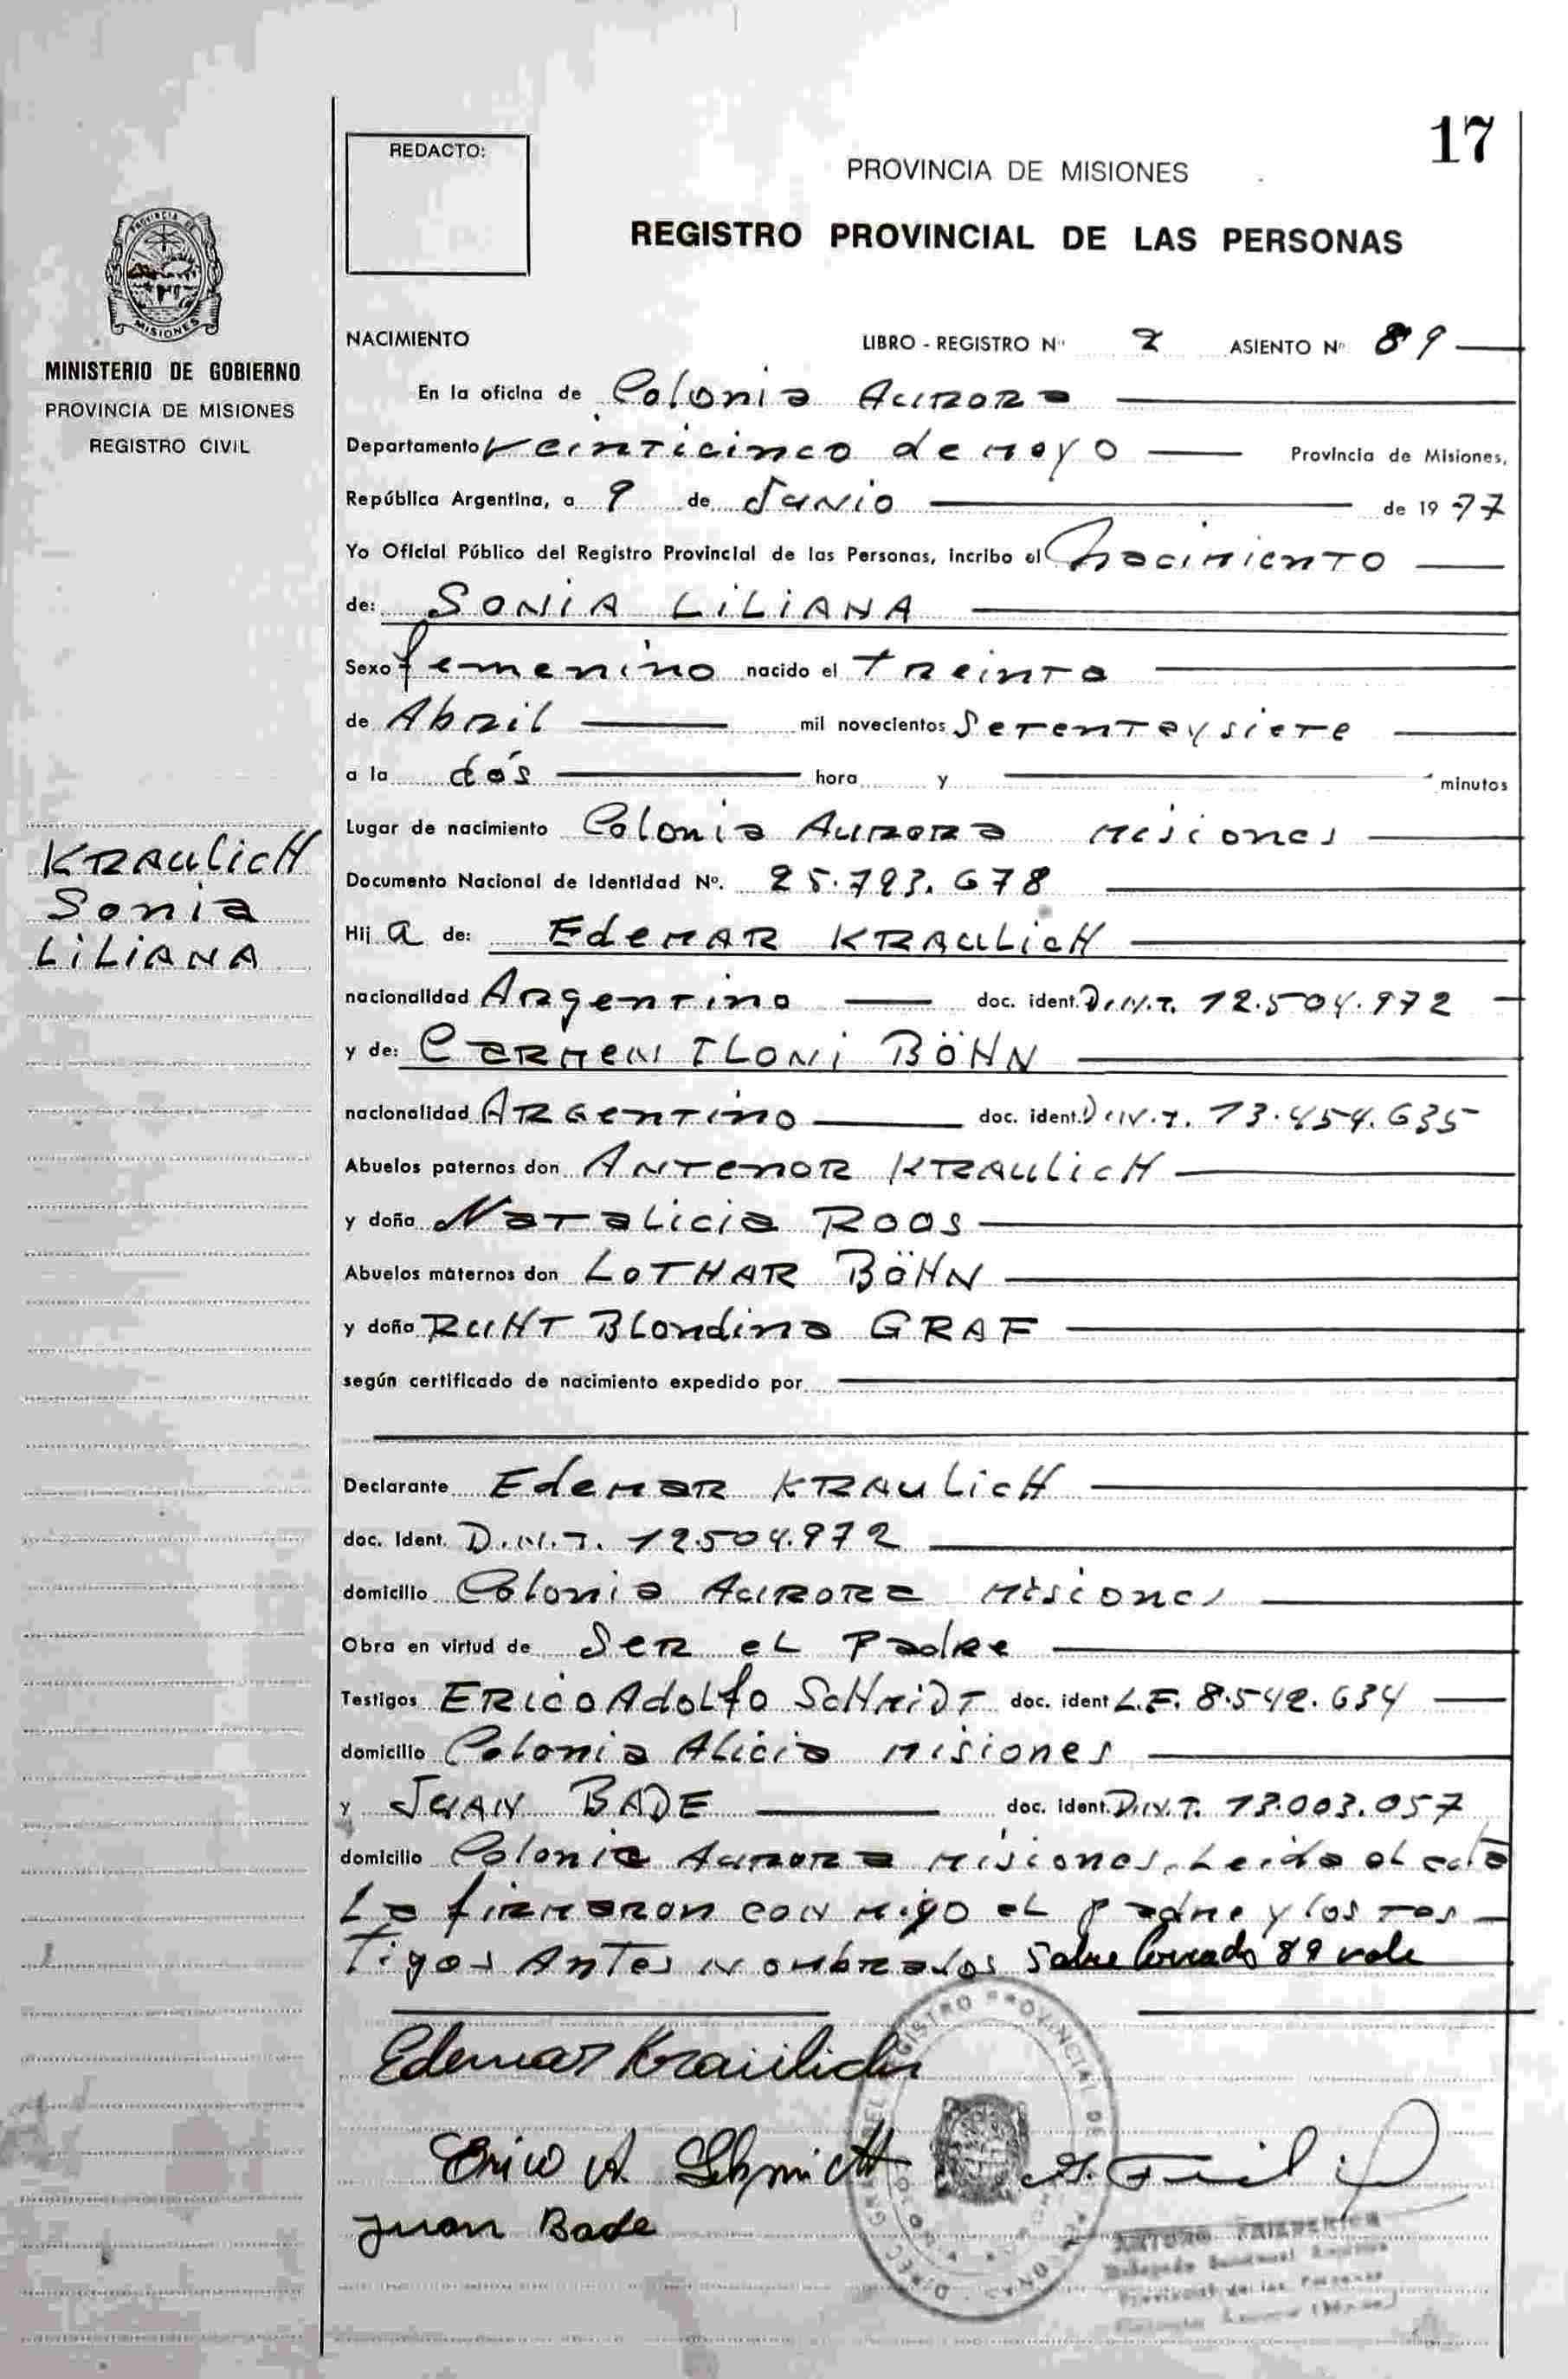 17
REDACTO:
PROVINCIA DE MISIONES
REGISTRO PROVINCIAL DE LAS PERSONAS
PROVINCIA DE
MISIONES
MINISTERIO DE GOBIERNO
PROVINCIA DE MISIONES
REGISTRO CIVIL
KRAULICH
Sonia
LILIANA
NACIMIENTO LIBRO - REGISTRO Nº 2 ASIENTO Nº 89
En la oficina de Colonia Aurora
Departamento Veinticinco de mayo Provincia de Misiones,
República Argentina, a 9 de Junio de 1977
Yo Oficial Público del Registro Provincial de las Personas, incribo el nacimiento
de: SONIA LILIANA
Sexo femenino nacido el treinta
de Abril mil novecientos Setentaysiete
a la dós hora y minutos
Lugar de nacimiento Colonia Aurora Misiones
Documento Nacional de Identidad Nº. 25.793.678
Hij a de: Edemar KRAULICH
nacionalidad Argentino doc. ident. D.N.I. 12.504.972
y de: Carmen ILONI BÖHN
nacionalidad Argentino doc. ident. D.N.I. 13.454.635
Abuelos paternos don Antenor KRAULICH
y doña Natalicia Roos
Abuelos maternos don LOTHAR BÖHN
y doña RUHT Blondina GRAF
según certificado de nacimiento expedido por
Declarante Edemar KRAULICH
doc. Ident. D.N.I. 12.504.972
domicilio Colonia Aurora Misiones
Obra en virtud de Ser el Padre
Testigos ERICO Adolfo SCHMIDT doc. ident L.E. 8.542.634
domicilio Colonia Alicia Misiones
y JUAN BADE doc. ident. D.N.I. 13.003.057
domicilio Colonia Aurora Misiones, Leida el acta
La firmaron con migo el padre y los tes-
tigos Antes nombrados Sobre borrado 89 vale
Edemar Kraulich
Erico A. Schmidt
Juan Bade
ARTURO FRIEDERICH
Provincial de las Personas